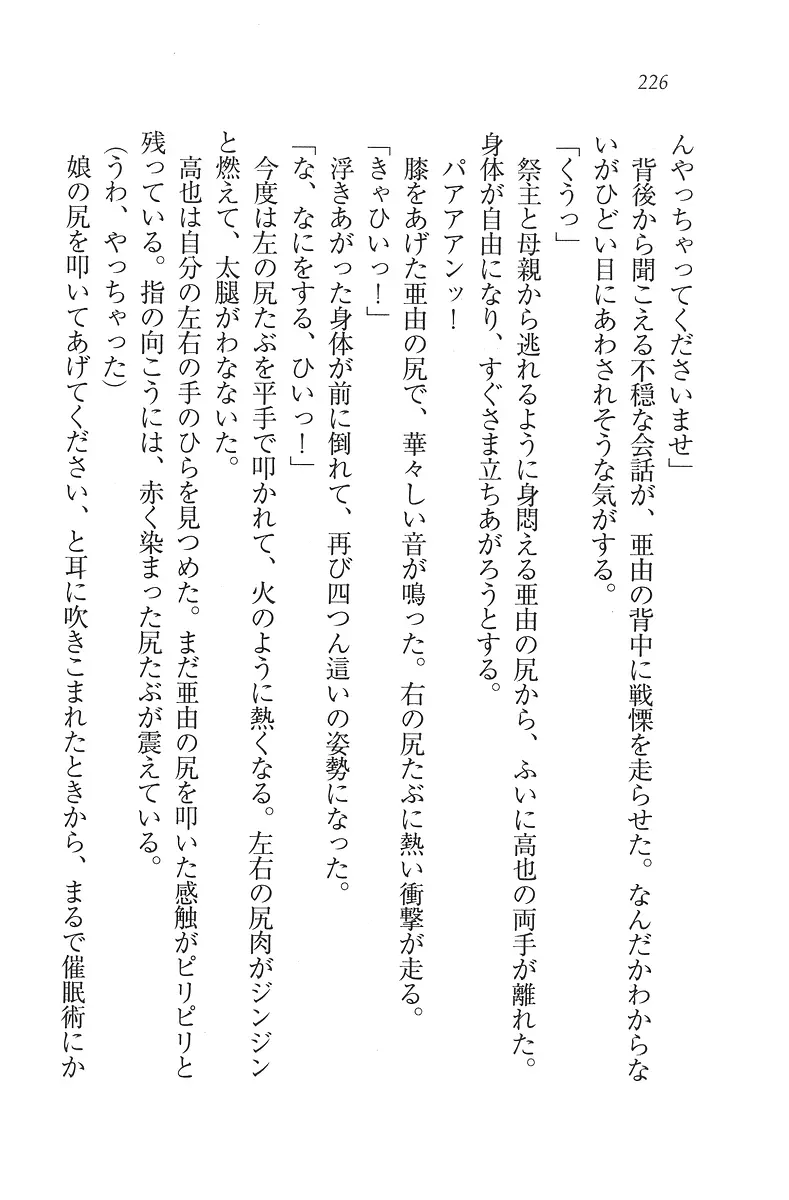 226
んやっちゃってくださいませ」
背後から聞こえる不穏な会話が、亜由の背中に戦慄を走らせた。なんだかわからな
いがひどい目にあわされそうな気がする。
「くうっ」
祭主と母親から逃れるように身悶える亜由の尻から、ふいに高也の両手が離れた。
身体が自由になり、すぐさま立ちあがろうとする。
パアアアンッ！
膝をあげた亜由の尻で、華々しい音が鳴った。右の尻たぶに熱い衝撃が走る。
「きゃひいっ！」
浮きあがった身体が前に倒れて、再び四つん這いの姿勢になった。
「な、なにをする、ひいっ！」
今度は左の尻たぶを平手で叩かれて、火のように熱くなる。左右の尻肉がジンジン
と燃えて、太腿がわなないた。
高也は自分の左右の手のひらを見つめた。まだ亜由の尻を叩いた感触がピリピリと
残っている。指の向こうには、赤く染まった尻たぶが震えている。
（うわ、やっちゃった）
娘の尻を叩いてあげてください、と耳に吹きこまれたときから、まるで催眠術にか